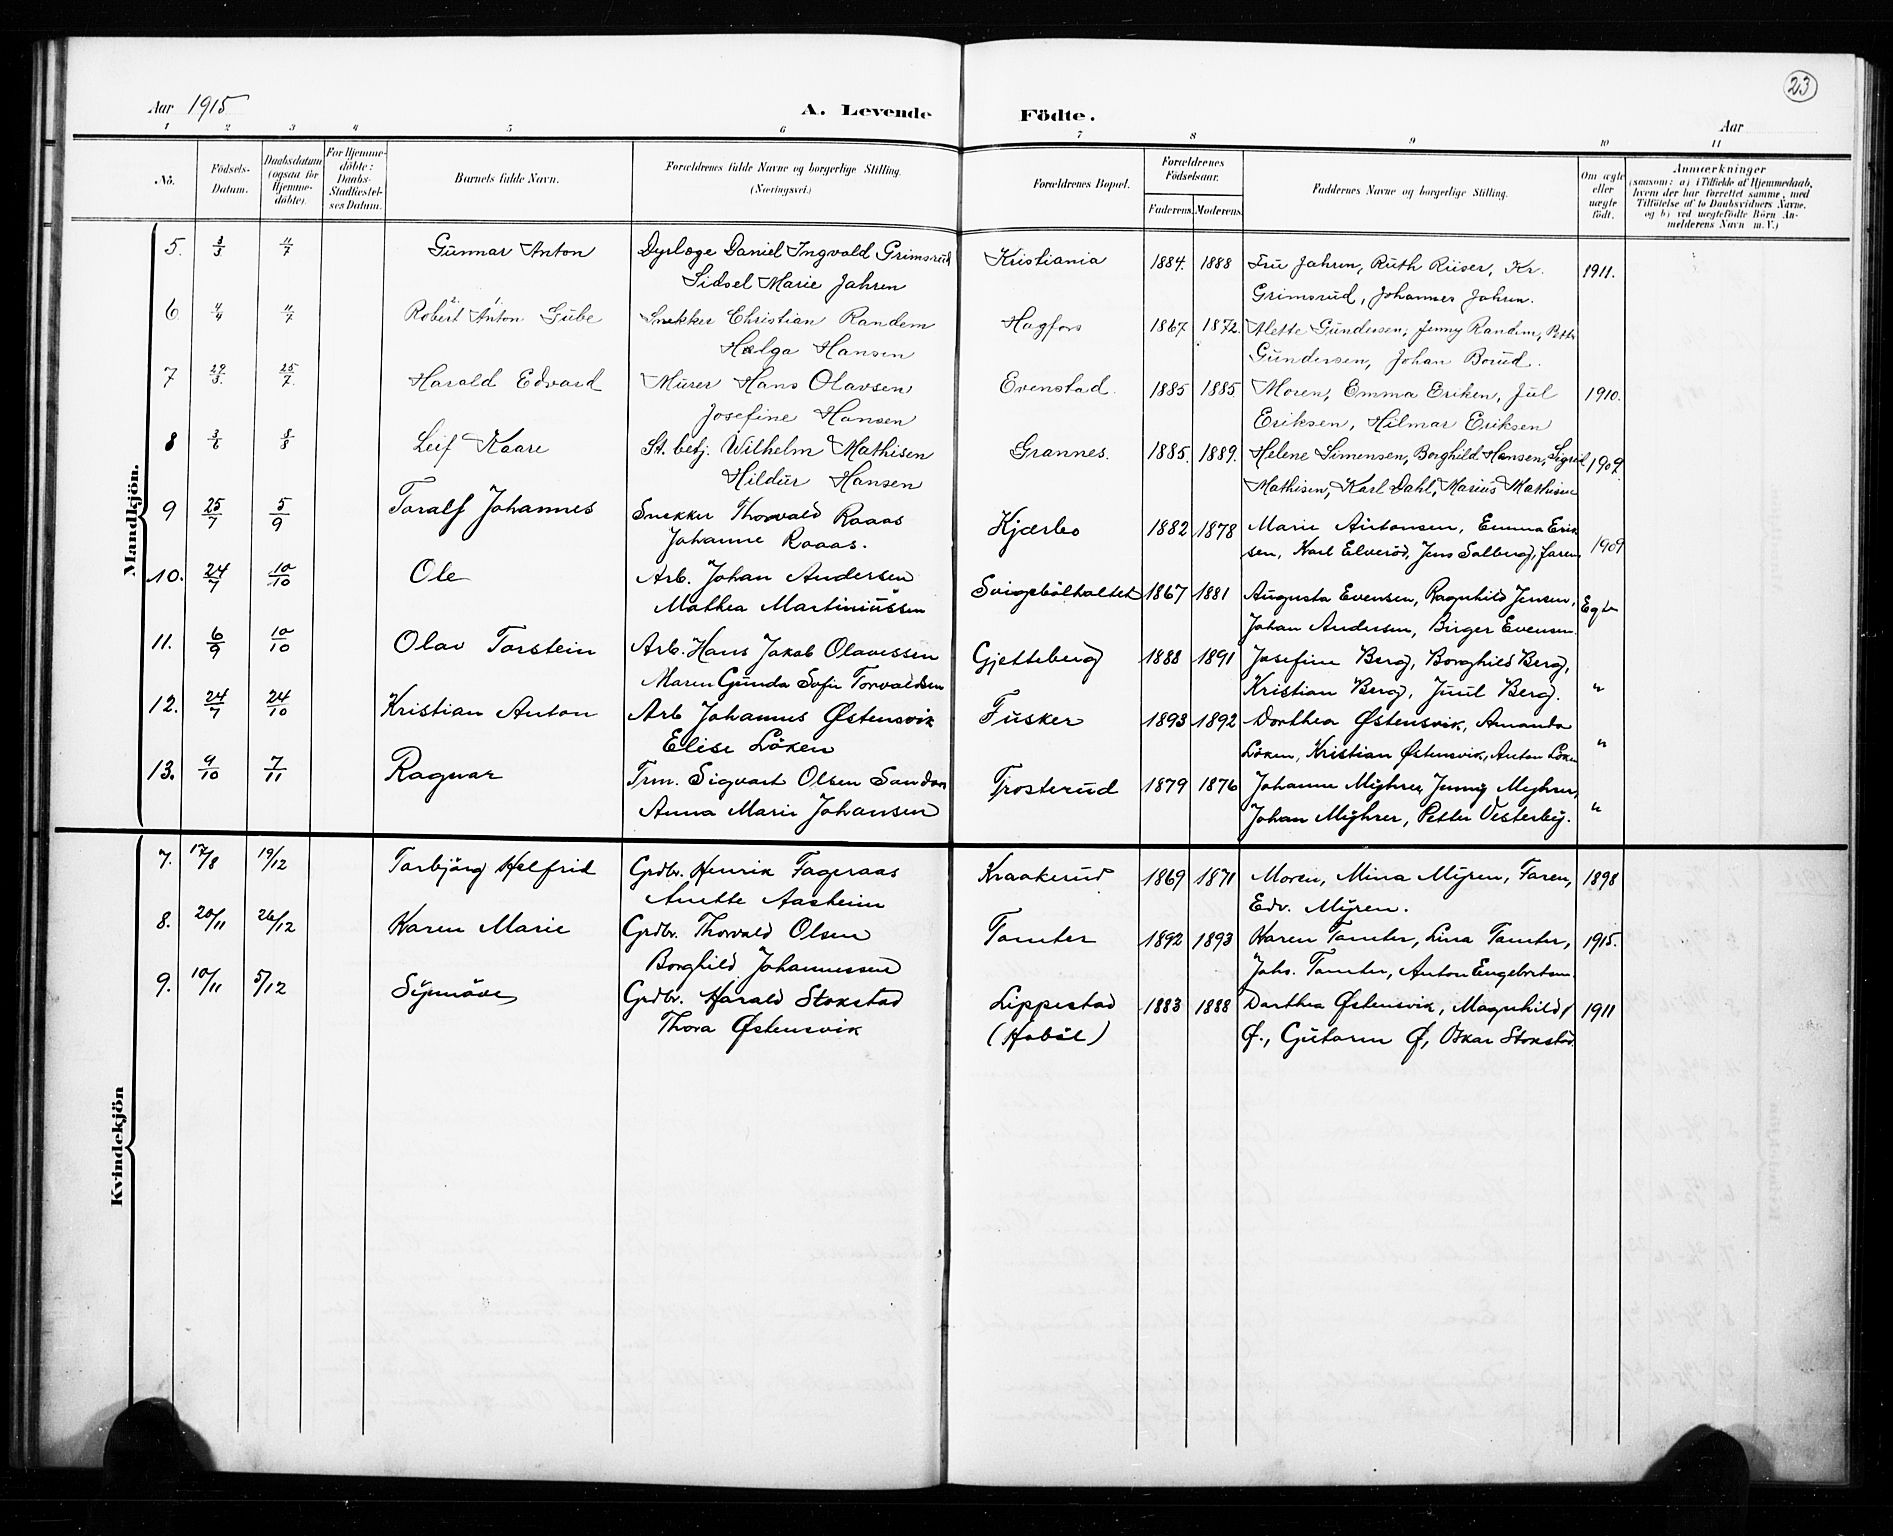 23
Aar 1915
A. Levende Födte.
Aar
1 2 3 4 5 6 7 8 9 10 11
No. Födsels-Datum. Daabsdatum (ogsaa for Hjemme-döbte). For Hjemme-döbte: Daabs-Stadfæstel-ses Datum. Barnets fulde Navn. Forældrenes fulde Navne og borgerlige Stilling. (Næringsvei.) Forældrenes Bopæl. Forældrenes Födselsaar. Faderens. Moderens. Faddernes Navne og borgerlige Stilling. Om ægte eller uægte födt. Anmærkninger (saasom: a) i Tilfælde af Hjemmedaab, hvem der har forrettet samme, med Tilföielse af to Daabsvidners Navne, og b) ved uægtefödte Börn Anmelderens Navn m. V.)
Mandkjön.
5. 3/3 4/7 Gunnar Anton Dyrlæge Daniel Ingvald Grimsrud Kristiania 1884. 1888 Fru Jahren, Ruth Riiser, Kr. 1911.
Sidsel Marie Jahren Grimsrud, Johannes Jahren.
6 4/4 4/7 Robert Anton Gube Snekker Christian Randem Hagfors 1867 1872. Alette Gundersen, Jenny Randem, Petter
Helga Hansen Gundersen, Johan Borud.
7 29/3. 25/7. Harald Edvard Murer Hans Olavsen Evenstad. 1885 1885. Moren, Emma Eriken, Jul 1910.
Josefine Hansen Eriksen, Hilmar Eriksen
8 3/6 8/8 Leif Kaare St. betj. Wilhelm Mathisen Grannes. 1885. 1889. Helene Simensen, Borghild Hansen, Sigrid 1909.
Hildur Hansen Mathisen, Karl Dahl, Marius Mathisen
9 25/7 5/9 Toralf Johannes Snekker Thorvald Raaas Kjærbo 1882 1878 Marie Antonsen, Emma Erik
Johanne Raaas. sen, Karl Elveröd, Jens Solberg, faren 1909
10. 24/7 10/10 Ole Arb. Johan Andersen Svigebölholtet 1867 1881 Augusta Evensen, Ragnhild Jensen, Egte
Mathea Martiniussen Johan Andersen, Birger Evensen.
11. 6/9 10/10 Olav Torstein Arb. Hans Jakob Olavessen Gjetteberg 1888 1891 Josefine Berg, Borghild Berg,
Maren Gunda Sofie Torvaldsen Kristian Berg, Juul Berg. "
12. 24/7 24/10 Kristian Anton Arb Johannes Østensvik Fusker 1893 1892 Dorthea Østensvik, Amanda
Elise Löken Löken, Kristian Østensvik, Anton Löken "
13. 9/10 7/11 Ragnar Trm. Sigvart Olsen Sanden Trosterud 1879 1876 Johanne Myhrer, Jenny Myhrer,
Anna Marie Johansen Johan Myhrer, Petter Vesterby. "
Kvindekjön
7. 17/8 19/12 Torbjörg Helfrid Grdbr. Henrik Fageraas Kraakerud 1869 1871 Moren, Mina Myren, Faren, 1898
Anette Aasheim Edv. Myren.
8. 20/11 26/12 Karen Marie Grdbr. Thorvald Olsen Tomter 1892 1893 Karen Tomter, Lina Tomter, 1915.
Borghild Johannessen Johs. Tomter, Anton Engebretsen
9. 10/11 5/12 Synnöve Grdbr. Harald Stokstad Lippestad 1883 1888 Dorthea Østensvik, Magnhild 1911
Thora Østensvik (Haböl) Ø., Gutorm Ø, Oskar Stokstad.